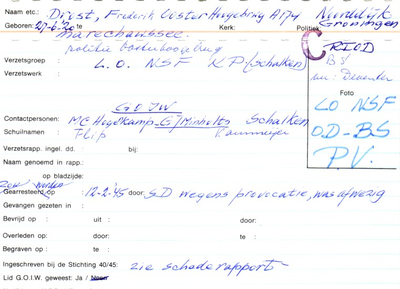 Naam etc.: Driest, Frederik Coster Hugebring A174 Noorddijk
Geboren: 27-6-'20 te Kerk: Politiek: Groningen
Marechaussee.
politie
Verzetsgroep : L.O. NSF KP (Schalken)
Verzetswerk :
C RIOD
BS
Foto
LO NSF
OD-BS
P.V.
G.O.I.W
Contactpersonen: MC Hogekamp - GJ Minholts Schalken
Schuilnamen : Flip
Verzetsrapp. ingel. dd. : bij:
Naam genoemd in rapp.:
op bladzijde:
zou worden
Gearresteerd op : 12-2-'45 door: SD wegens provocatie, was afwezig
Gevangen gezeten in :
Bevrijd op : uit : door:
Overleden op: te : door:
Begraven op : te :
Ingeschreven bij de Stichting 40/45: zie schaderapport
Lid G.O.I.W. geweest: Ja / Neen